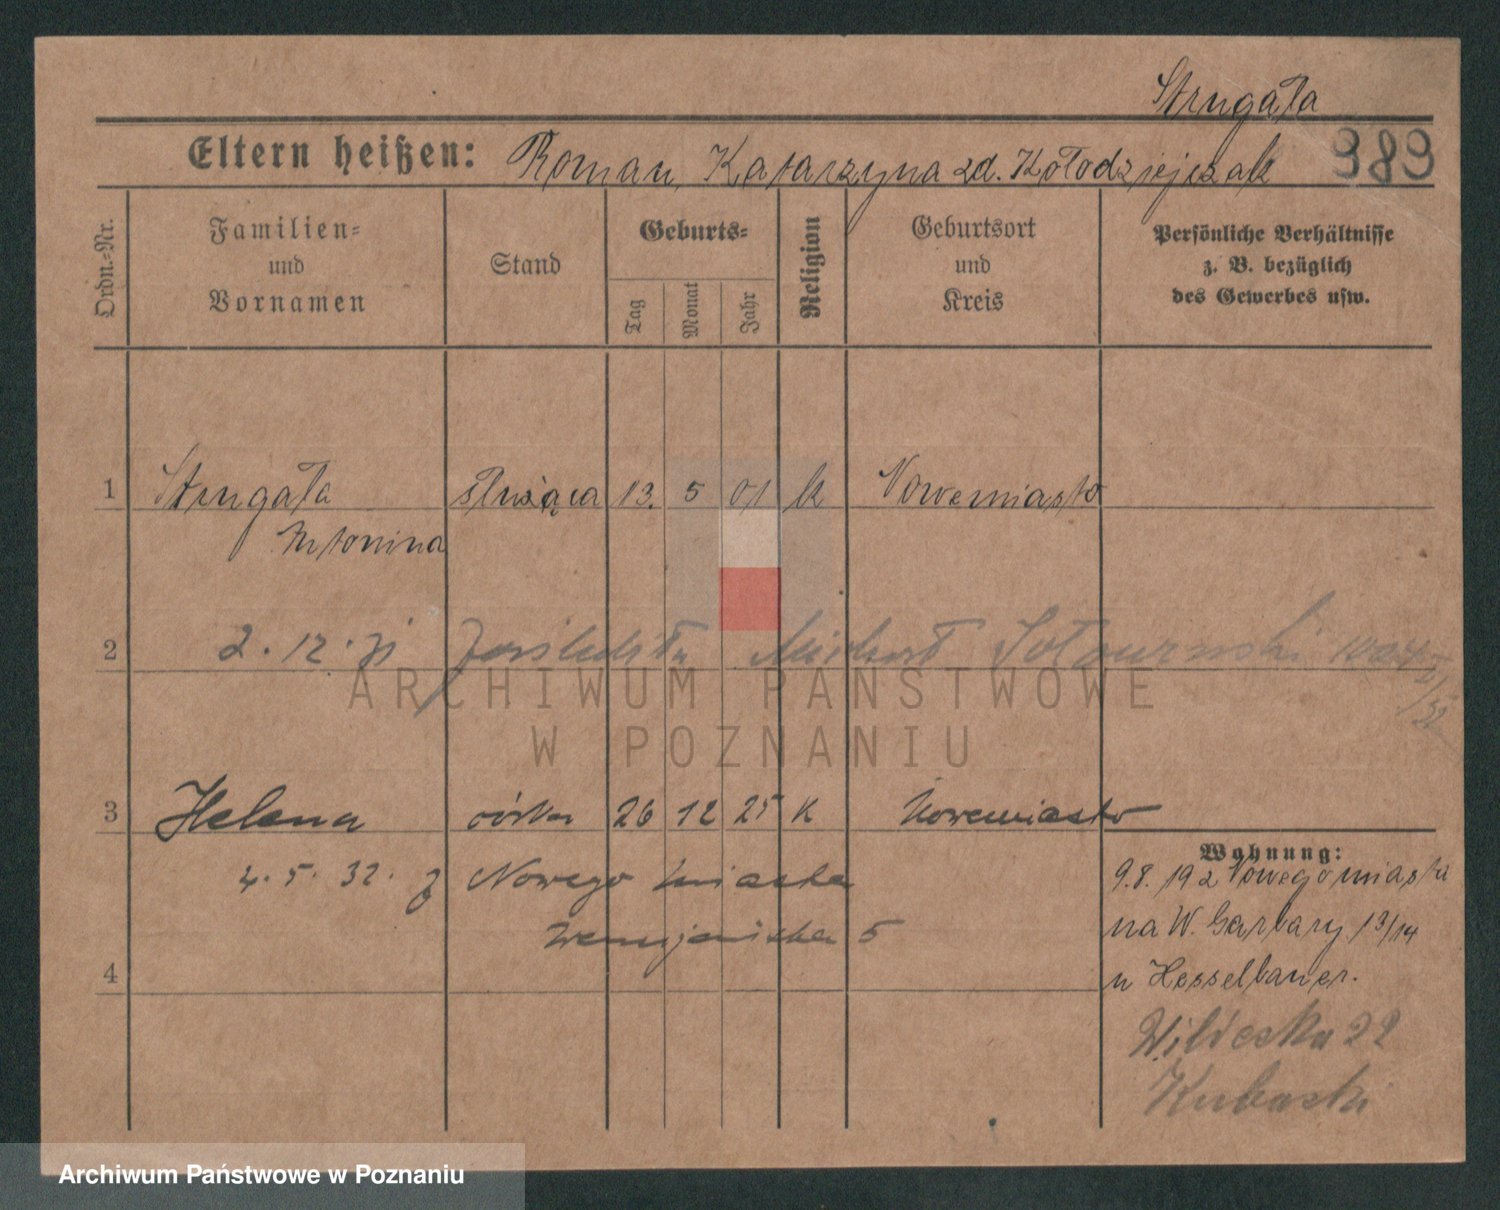 Strugała
Eltern heißen: Roman, Katarzyna zd. Kołodziejczak 989
Ordn.-Nr.
Familien-
und
Vornamen
Stand
Geburts-
Tag
Monat
Jahr
Religion
Geburtsort
und
Kreis
Persönliche Verhältnisse
z. B. bezüglich
des Gewerbes usw.
1 Strugała służąca 13. 5 01 k Nowemiasto
Antonina
2 2.12. Michał
ARCHIWUM PAŃSTWOWE
W POZNANIU
3 Helena córka 26 12 25 K Nowemiasto
Wohnung:
4. 5. 32. Nowego miasta
5
9.8. 192 Nowego miasta
na W. Garbary 13/14
u Hesselbauer.
4
22
Kubaski
Archiwum Państwowe w Poznaniu